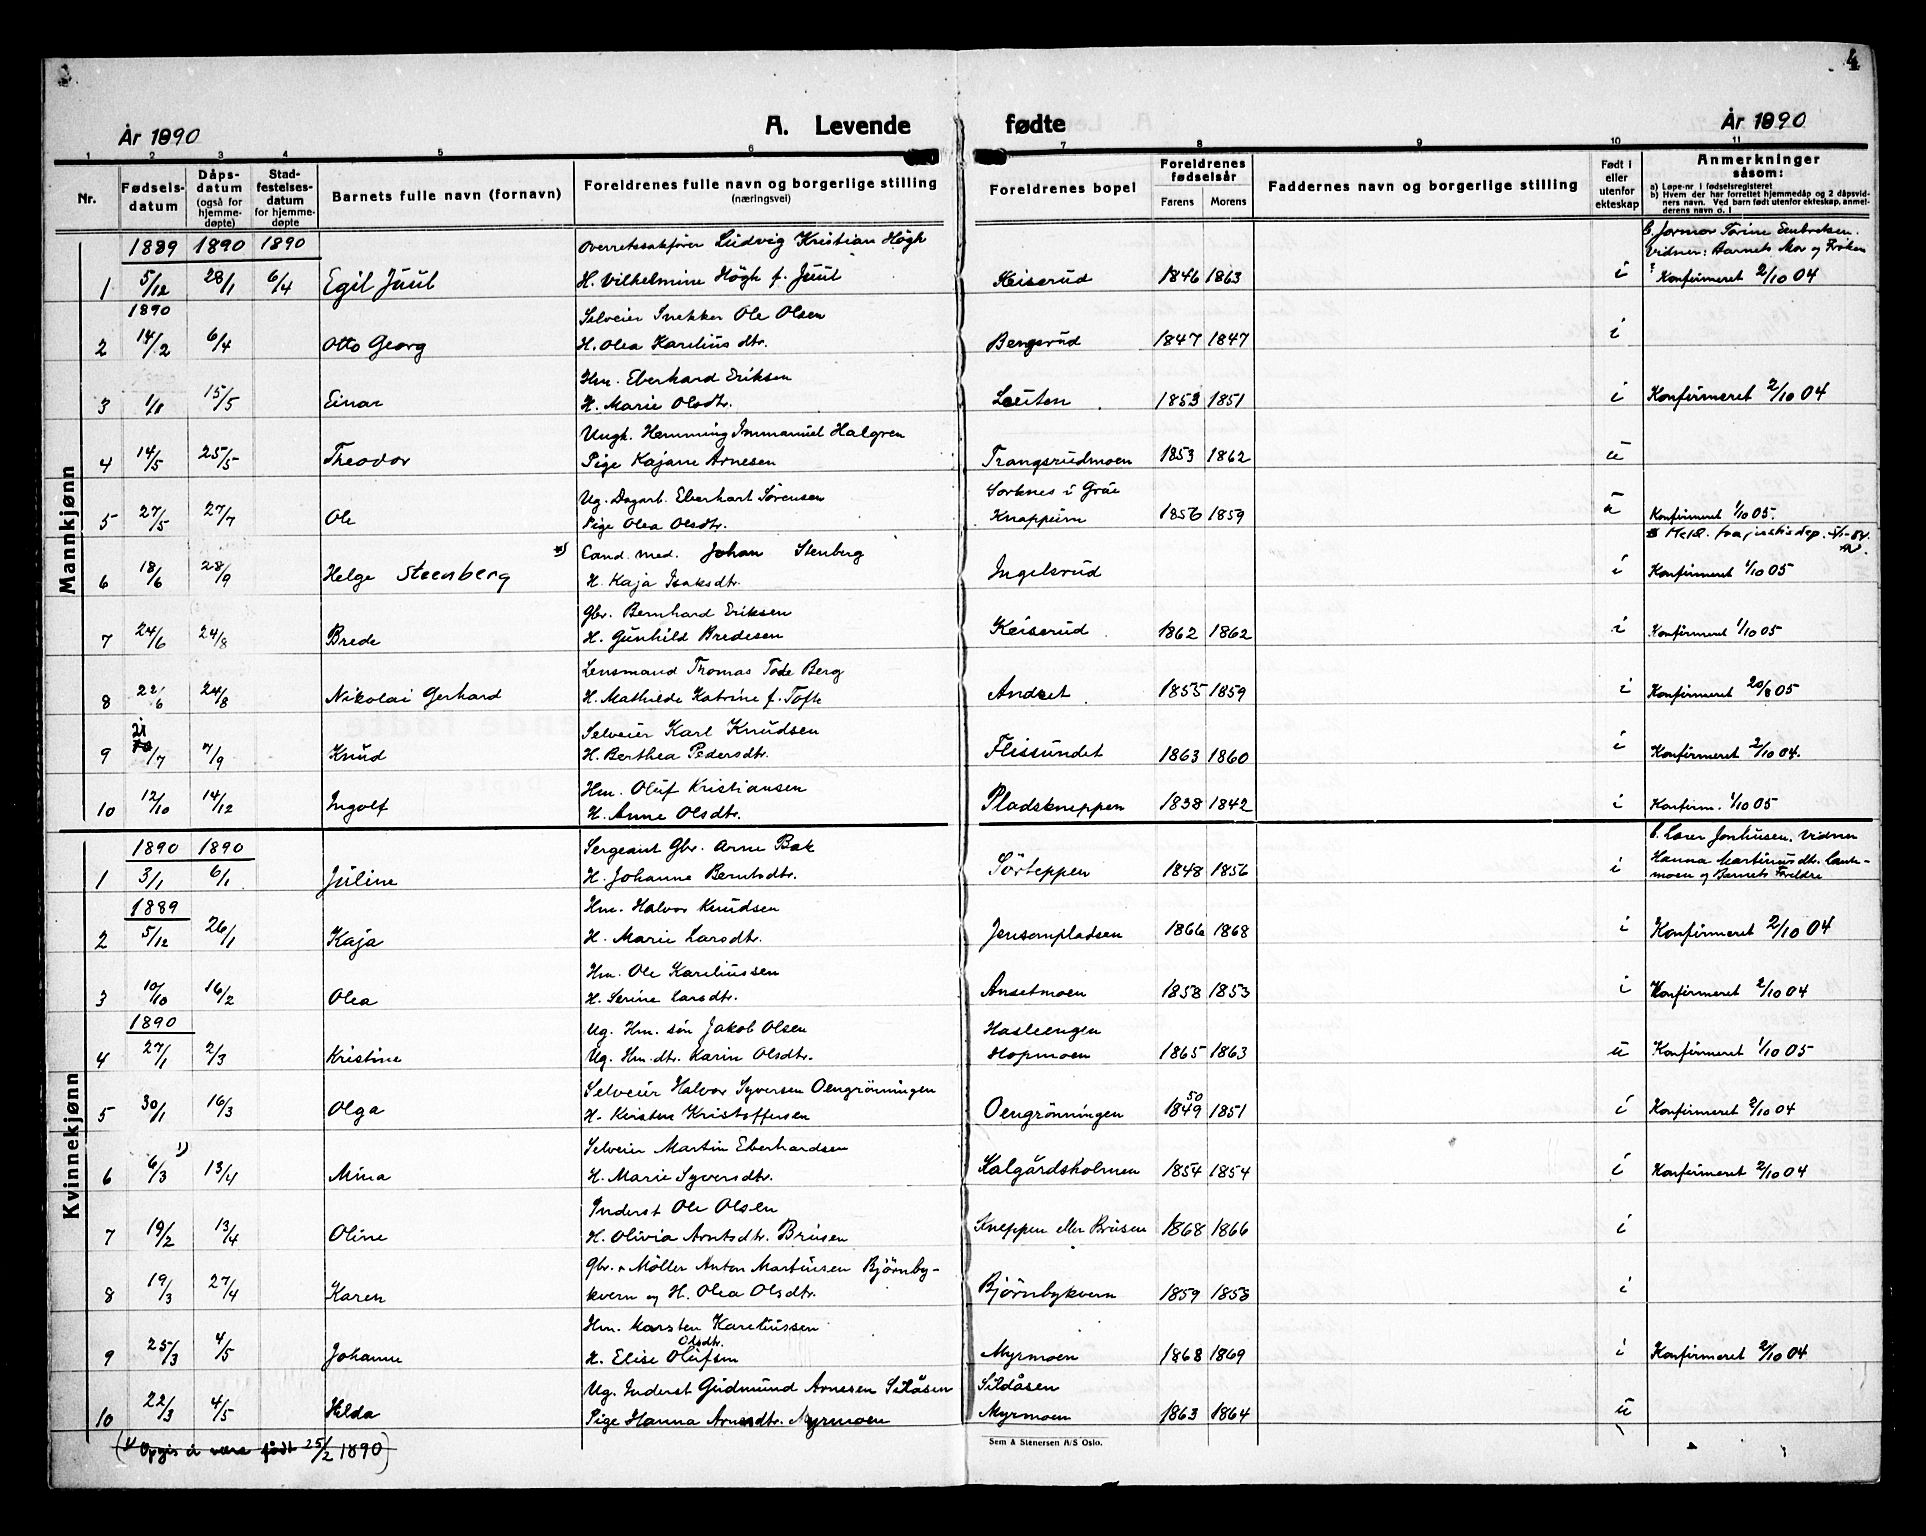 4
År 1890
A. Levende
fødte
År 1890
1 2 3 4 5 6 7 8 9 10 11
Nr.
Fødsels-
datum
Dåps-
datum
(også for
hjemme-
døpte)
Stad-
festelses-
datum
for hjemme-
døpte
Barnets fulle navn (fornavn)
Foreldrenes fulle navn og borgerlige stilling
(næringsvei)
Foreldrenes bopel
Foreldrenes
fødselsår
Farens Morens
Faddernes navn og borgerlige stilling
Født i
eller
utenfor
ekteskap
Anmerkninger
såsom:
a) Løpe-nr i fødselsregisteret
b) Hvem der har forrettet hjemmedåp og 2 dåpsvid-
ners navn. Ved barn født utenfor ekteskap, anmel-
derens navn o. l
Mannkjønn
1889 1890 1890 Overretssakfører Ludvig Kristian Högh
Vidner: Barnets Mor og Frøken
1 5/12 28/1 6/4 Egil Juul H. Vilhelmine Högh f. Juul Keiserud 1846 1863 i Konfirmeret 2/10 04
1890 Selveier Snekker Ole Olsen
2 14/2 6/4 Otto Georg H. Olea Karelius dtr. Bengsrud 1847 1847 i
Hm. Eberhard Eriksen
3 1/8 15/5 Einar H. Marie Olsdtr. Leuten 1853 1851 i Konfirmeret 2/10 04
Ungk. Hemming Immanuel Halgren
4 14/5 25/5 Theodor Pige Kajane Arnesen Trangsrudmoen 1853 1862 u
Ug. Dagarb. Eberhart Sørensen Sorknes i Grue
5 27/5 27/7 Ole Pige Olea Olsdtr. Knappum 1856 1859 u Konfirmeret 1/10 05.
Cand. med. Johan Stenberg
6 18/6 28/9 Helge Steenberg H. Kaja Isaksdtr. Ingelsrud i Konfirmeret 1/10 05
Gbr. Bernhard Eriksen
7 24/6 24/8 Brede H. Gunhild Bredesen Keiserud 1862 1862 i Konfirmeret 1/10 05
Lensmand Thomas Tode Berg
8 22/6 24/8 Nikolai Gerhard H. Mathilde Katrine f. Toft Andset 1855 1859 i Konfirmeret 20/8 05
21 Selveier Karl Knudsen
9 /7 7/9 Knud H. Berthea Pedersdtr. Flissundet 1863 1860 i Konfirmeret 2/10 04.
Hm. Oluf Kristiansen
10 12/10 14/12 Ingolf H. Anne Olsdtr. Pladskneppen 1838 1842 i Konfirm. 1/10 05
Kvinnekjønn
1890 1890 Sergeant Gbr. Arne Bak Vidner
Hanna Martinusdtr.
1 3/1 6/1 Juline H. Johanne Berntsdtr. Sörteppen 1848 1856 i moen og Barnets Foreldre
1889 Hm. Halvor Knudsen
2 5/12 26/1 Kaja H. Marie Larsdtr. Jensempladsen 1866 1868 i Konfirmeret 2/10 04
Hm. Ole Kareliussen
3 10/10 16/2 Olea H. Serine Larsdtr. Ansetmoen 1858 1853 i Konfirmeret 2/10 04
1890 Ug. Hm. søn Jakob Olsen Hasleengen
4 27/1 2/3 Kristine Ug. Hm. dtr. Karin Olsdtr. Hopmoen 1865 1863 u Konfirmeret 1/10 05
Selveier Halvor Syversen Oengrönningen 50
5 30/1 16/3 Olga H. Kristine Kristoffersen Oengrönningen 1849 1851 i Konfirmeret 2/10 04
Selveier Martin Eberhardsen
6 6/3 1) 13/4 Mina H. Marie Syversdtr. Kalgårdsholmen 1854 1854 i Konfirmeret 2/10 04
Inderst Ole Olsen
7 19/2 13/4 Oline H. Olivia Arntsdtr. Brusen Kneppen eller Brusen 1868 1866 i
Gbr. & Møller Anton Martinsen Bjørnby-
8 19/3 27/4 Karen kvern og H. Olea Olsdtr. Bjørnbykvern 1859 1858 i
Hm. Marsten Kareliussen
Olsdtr.
9 25/3 4/5 Johanne H. Elise Olufsen Myrmoen 1868 1869 i Konfirmeret 2/10 04
Ug. Inderst Gudmund Arnesen Sildåsen Sildåsen
10 22/3 4/5 Hilda Pige Hanna Arnesdtr. Myrmoen Myrmoen 1863 1864 u
(1) Opgis å være født 25/2 1890)
Sem & Stenersen A/S Oslo.